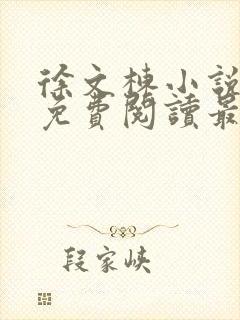 徐文栋小説
免費閱讀最
段家峡